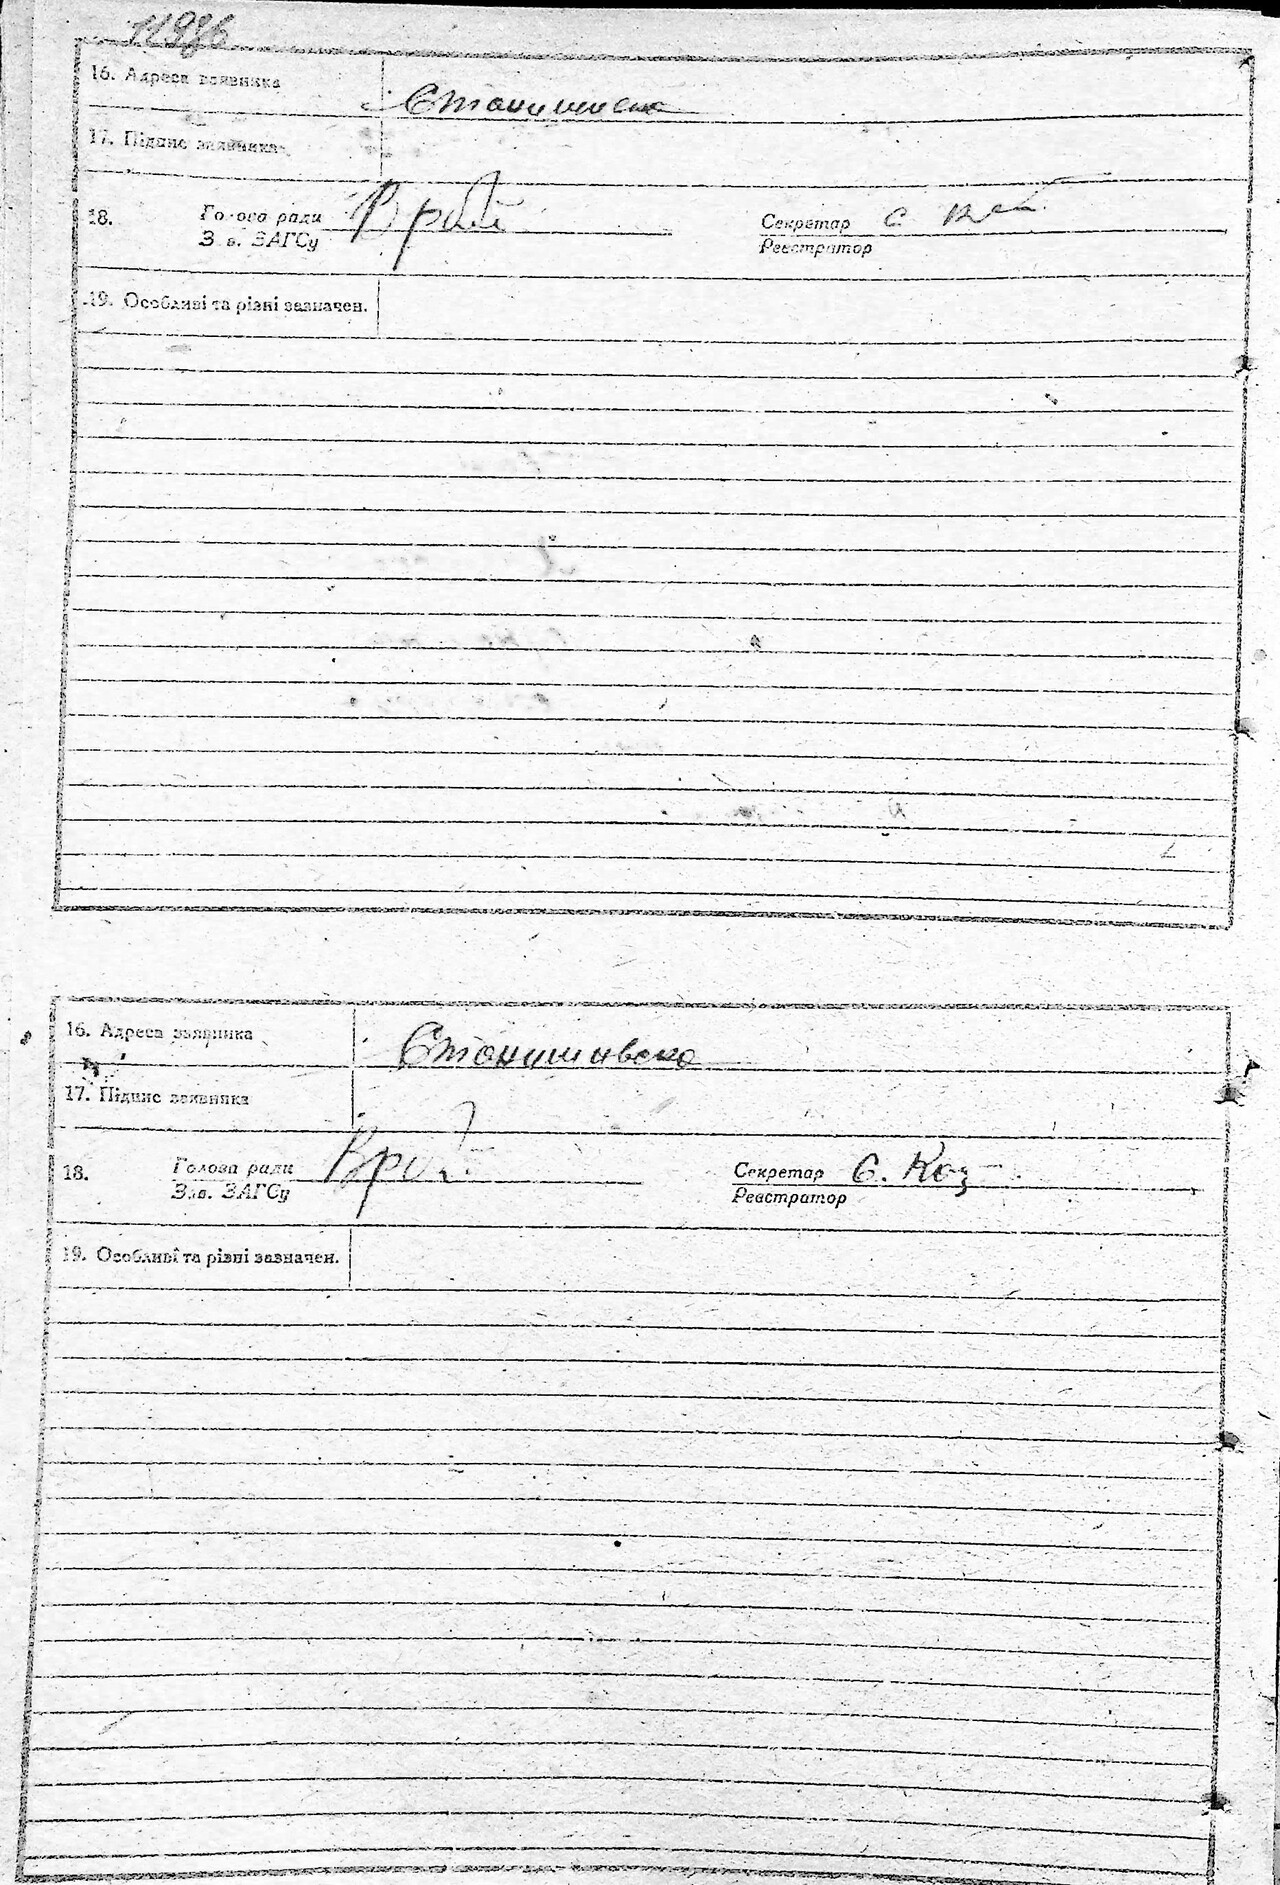 16. Адреса заявника
17. Підпис заявника
18. Голова ради Секретар С.
Зав. ЗАГСу Реєстратор
19. Особливі та різні зазначен.
16. Адреса заявника Станишивска
17. Підпис заявника
18. Голова ради Секретар С. Коз
Зав. ЗАГСу Реєстратор
19. Особливі та різні зазначен.